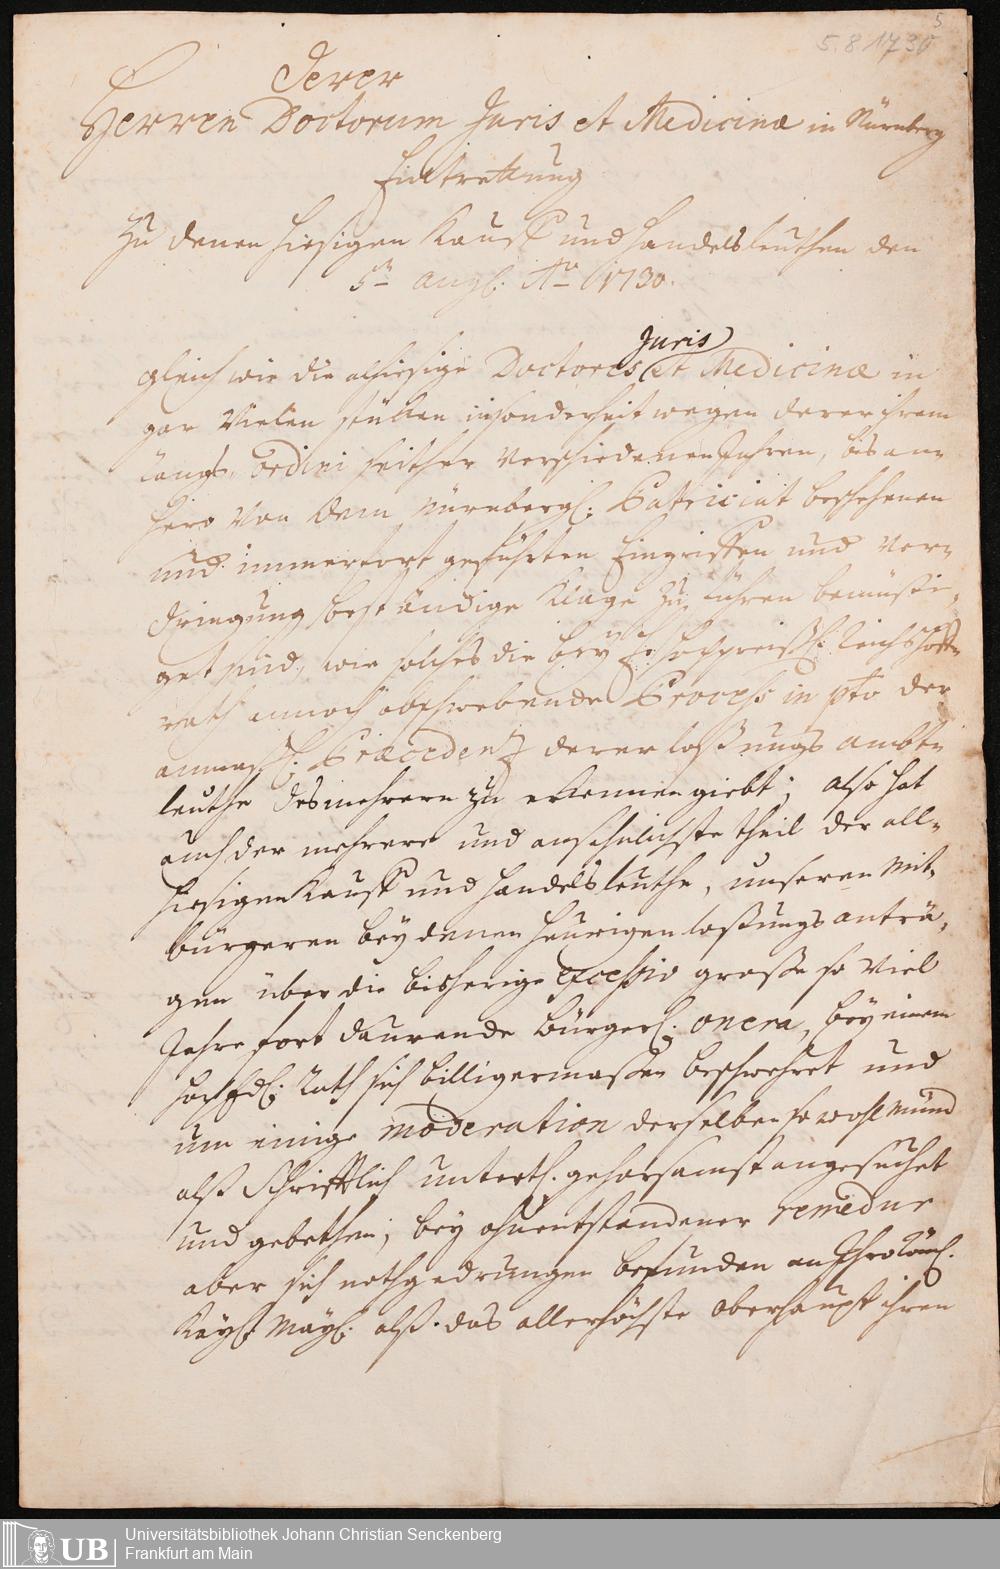 5
5.8.1730
Derer
Herren Doctorum Juris et Medicinæ in Nürnberg
Eintrettung
Zu denen hiesigen Kauff und Handelsleuthen den
5ten Augl. Ao 1730.
Gleich wie die alhiesige Doctores Juris et Medicinæ in
gar Vielen insonderheit wegen derer ihrem
Ordini seither verschiedenen Jahren, bis an-
hero Von dem Nürnbergl. Patriciat beschehenen
und immerfort geführten Eingriffen und Ver-
dringung beständige Klage zu führen bemüssi-
get sind, wie solches die bey höchstpreißl. Reichshoff-
rath annoch obschwebende Process in pto der
anmaßl. Præcedenz derer Loßungs Ambt-
leuthe des mehrern zu erkennen giebt; also hat
auch der mehrere und ansehnlichste theil der all-
hiesigen Kauff und Handelsleuthe, unseren Mit-
bürgeren bey denen heurigen Loßungs anträ-
gen über die bisherige excessiv grosse so Viel
Jahre fort daurende Bürgerl. onera, bey einem
HochEdl. Rath sich billigermaßen beschwehret und
um einige moderation derselben so wohl Münd
alß Schrifftlich unterth. gehorsamst angesuchet
und gebethen; bey ohnentstandener remedur
aber sich nothgedrungen befunden an Ihro Röml.
Kayßl. Mayl. alß das allerhöchste Oberhaupt ihren
UB
Universitätsbibliothek Johann Christian Senckenberg
Frankfurt am Main